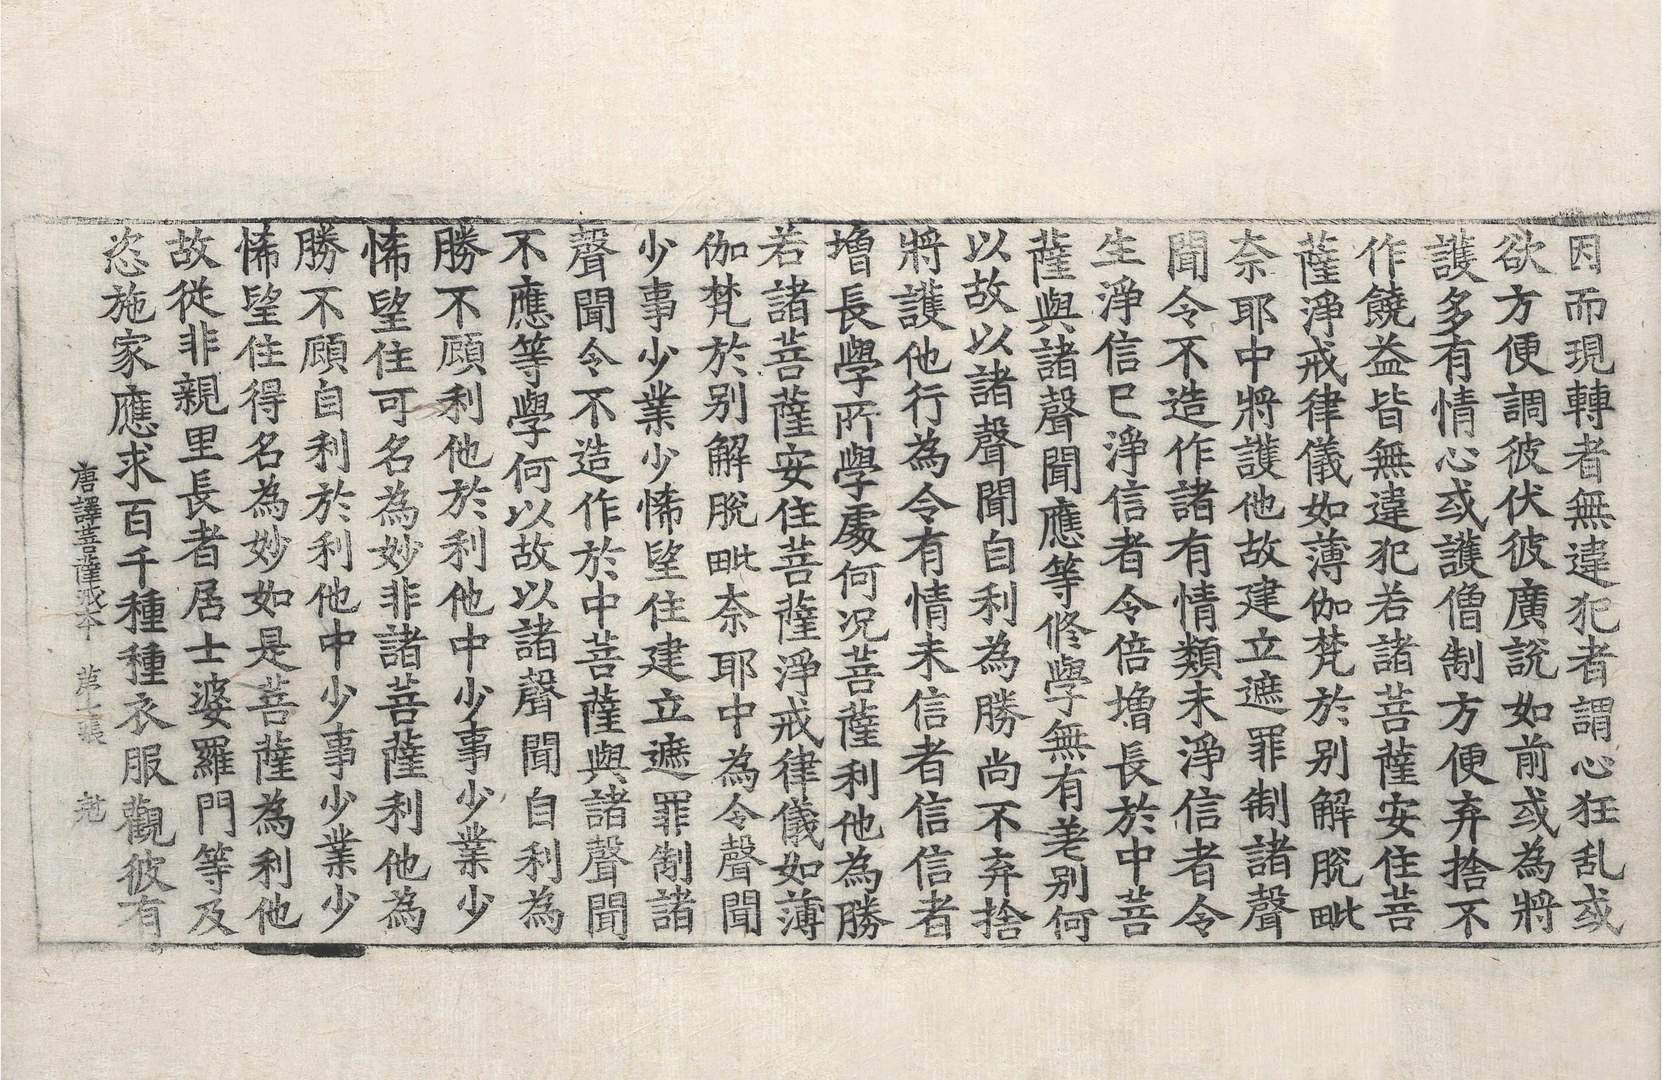 因而現轉者無違犯者謂心狂乱或
欲方便調彼伏彼廣說如前或為將
護多有情心或護僧制方便弃捨不
作饒益皆無違犯若諸菩薩安住菩
薩淨戒律儀如薄伽梵於別解脫毗
奈耶中將護他故建立遮罪制諸聲
聞令不造作諸有情類未淨信者令
生淨信已淨信者令倍增長於中菩
薩與諸聲聞應等修學無有差別何
以故以諸聲聞自利為勝尚不弃捨
將護他行為令有情未信者信信者
增長學所學處何況菩薩利他為勝
若諸菩薩安住菩薩淨戒律儀如薄
伽梵於別解脫毗奈耶中為令聲聞
少事少業少悕望住建立遮罪制諸
聲聞令不造作於中菩薩與諸聲聞
不應等學何以故以諸聲聞自利為
勝不顧利他於利他中少事少業少
悕望住可名為妙非諸菩薩利他為
勝不顧自利於利他中少事少業少
悕望住得名為妙如是菩薩為利他
故從非親里長者居士婆羅門等及
恣施家應求百千種種衣服觀彼有
唐譯菩薩戒本 第七張